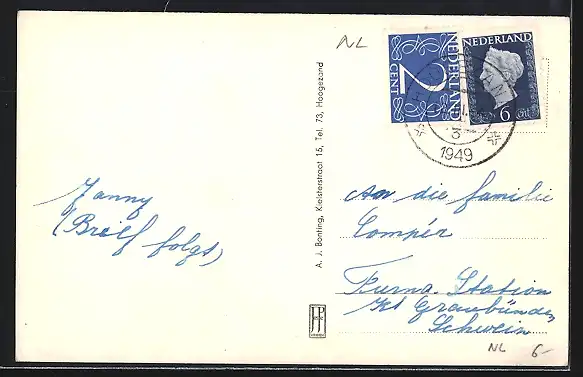 NL
2
CENT
NEDERLAND
NEDERLAND
6 ct
3
1949
A. J. Bonting, Kielsterstraat 15, Tel. 73, Hoogezand
Janny
(Brief folgt)
An die familie
Compér
Furna. Station
Kt Graubünden
Schweiz
JP
NL 6-